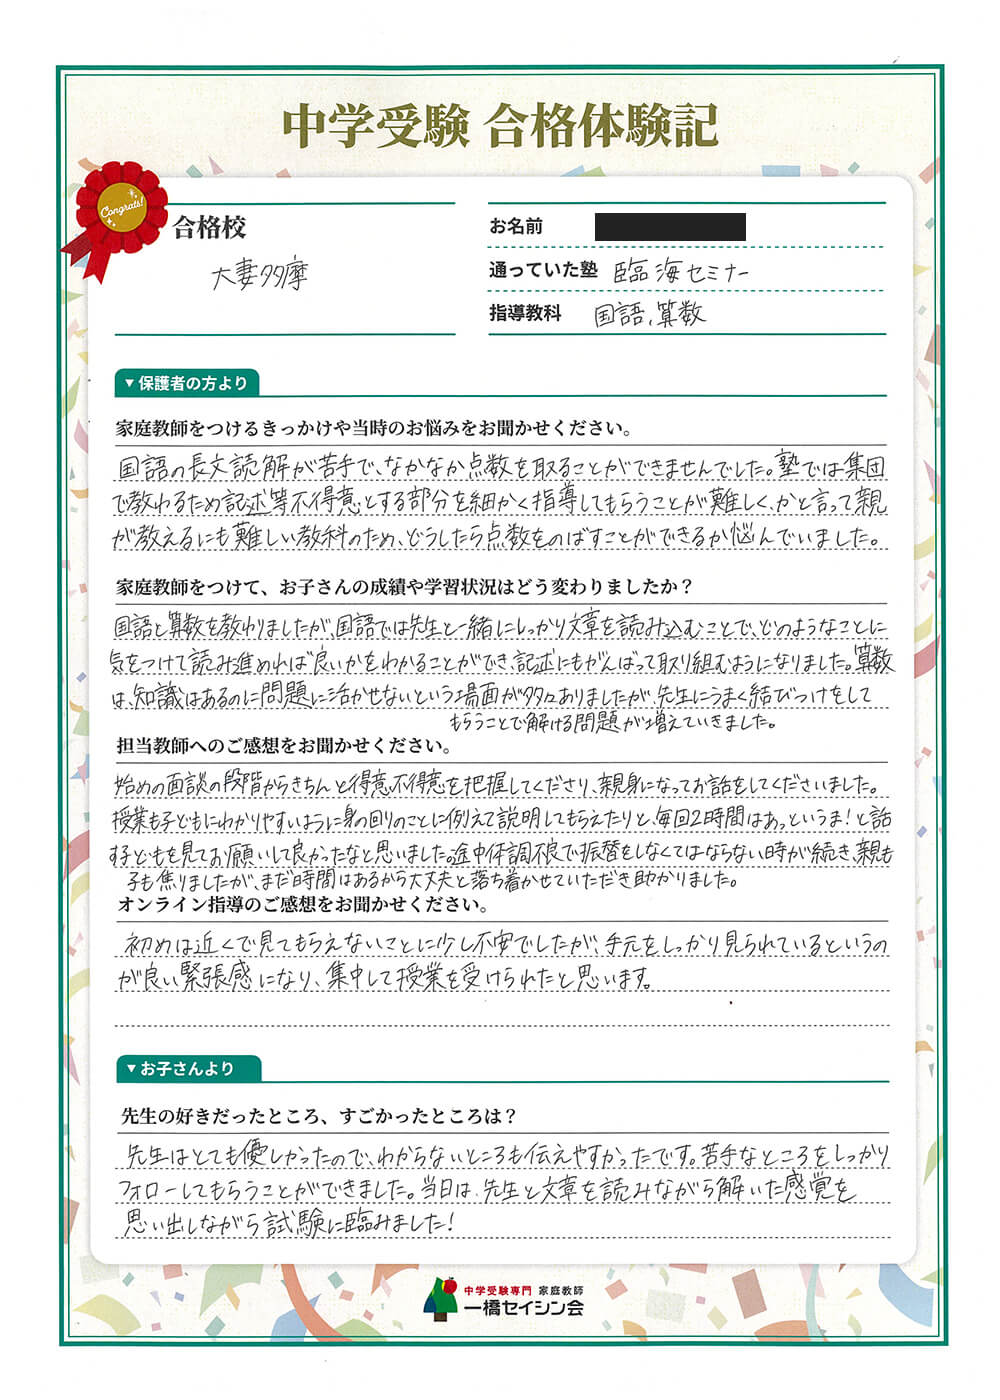 中学受験 合格体験記
Congrats!
合格校
大妻多摩
お名前
通っていた塾 臨海セミナー
指導教科 国語、算数
▼保護者の方より
家庭教師をつけるきっかけや当時のお悩みをお聞かせください。
国語の長文読解が苦手で、なかなか点数を取ることができませんでした。塾では集団
で教わるため記述等不得意とする部分を細かく指導してもらうことが難しく、かと言って親
が教えるにも難しい教科のため、どうしたら点数をのばすことができるか悩んでいました。
家庭教師をつけて、お子さんの成績や学習状況はどう変わりましたか？
国語と算数を教わりましたが、国語では先生と一緒にしっかり文章を読み込むことで、どのようなことに
気をつけて読み進めれば良いかをわかることができ、記述にもがんばって取り組むようになりました。算数
は、知識はあるのに問題に活かせないという場面が多々ありましたが、先生にうまく結びつけをして
もらうことで解ける問題が増えていきました。
担当教師へのご感想をお聞かせください。
始めの面談の段階からきちんと得意不得意を把握してくださり、親身になってお話をしてくださいました。
授業も子どもにわかりやすいように身の回りのことに例えて説明してもらえたりと、毎回2時間はあっというま！と話
す子どもを見てお願いして良かったなと思いました。途中体調不良で振替をしなくてはならない時が続き、親も
子も焦りましたが、まだ時間はあるから大丈夫と落ち着かせていただき助かりました。
オンライン指導のご感想をお聞かせください。
初めは近くで見てもらえないことに少し不安でしたが、手元をしっかり見られているというの
が良い緊張感になり、集中して授業を受けられたと思います。
▼お子さんより
先生の好きだったところ、すごかったところは？
先生はとても優しかったので、わからないところも伝えやすかったです。苦手なところをしっかり
フォローしてもらうことができました。当日は、先生と文章を読みながら解いた感覚を
思い出しながら試験に臨みました！
中学受験専門 家庭教師
一橋セイシン会